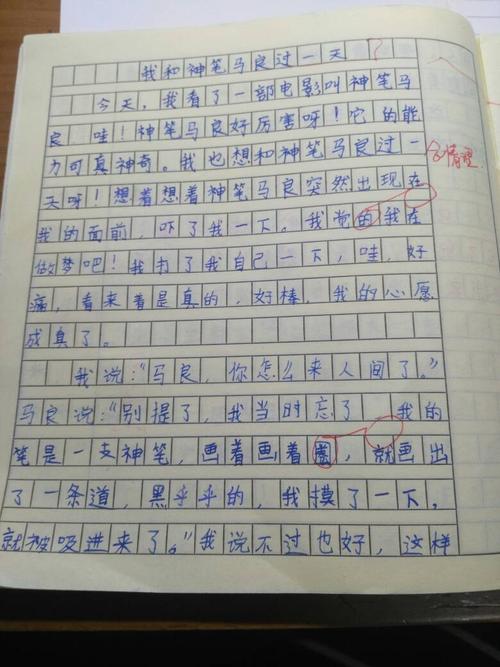 我和神笔马良过一天 ?
今天，我看了一部电影叫神笔马
良，哇！神笔马良好厉害呀！它的能
力可真神奇。我也想和神笔马良过一
天呀！想着想着神笔马良突然出现在
我的面前，吓了我一下。我觉的我在
做梦吧！我打了我自己一下，哇，好
痛，看来着是真的，好棒，我的心愿
成真了。
我说：“马良，你怎么来人间了。”
马良说：“别提了，我当时忘了 我的
笔是一支神笔，画着画着 ，就画出
了一条道，黑乎乎的，我摸了一下，
就被吸进来了。”我说不过也好，这样